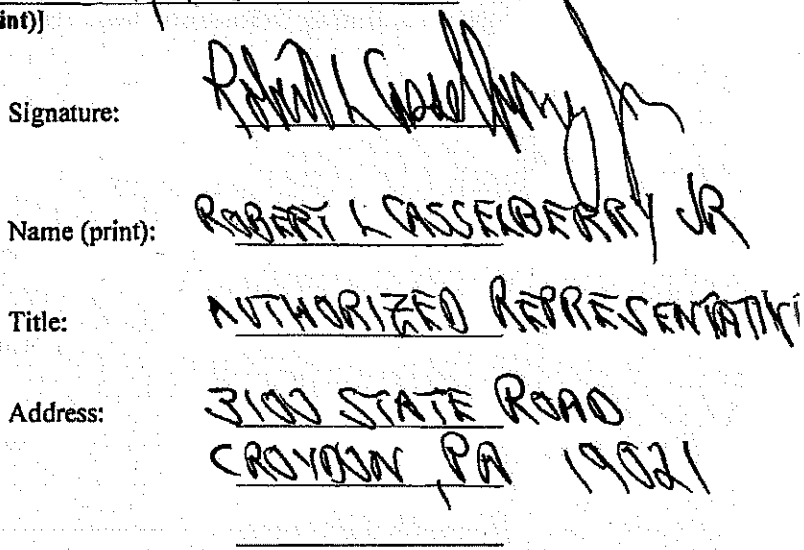 int)]
Signature: Robert L Casselberry Jr
Name (print): ROBERT L CASSELBERRY JR
Title: AUTHORIZED REPRESENTATIVE
Address: 3100 STATE ROAD
CROYDON, PA 19021